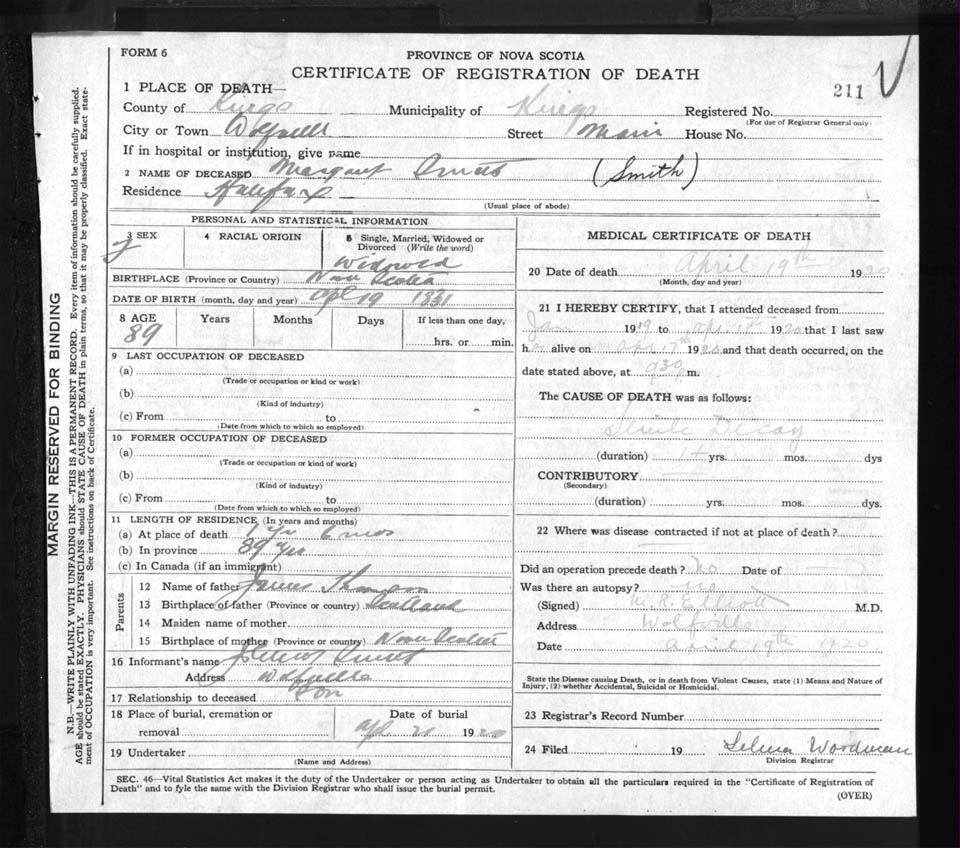 FORM 6
PROVINCE OF NOVA SCOTIA
CERTIFICATE OF REGISTRATION OF DEATH
211
1 PLACE OF DEATH—
County of Kings Municipality of Kings Registered No.
(For use of Registrar General only)
City or Town Wolfville Street Main House No.
If in hospital or institution, give name
2 NAME OF DECEASED Margaret (Smith)
Residence Halifax
(Usual place of abode)
PERSONAL AND STATISTICAL INFORMATION
3 SEX 4 RACIAL ORIGIN 5 Single, Married, Widowed or Divorced (Write the word)
f Widowed
BIRTHPLACE (Province or Country) Nova Scotia
DATE OF BIRTH (month, day and year) Apl 19 1831
8 AGE Years Months Days If less than one day,
89 hrs. or min.
9 LAST OCCUPATION OF DECEASED
(a)
(Trade or occupation or kind or work)
(b)
(Kind of industry)
(c) From to
(Date from which to which so employed)
10 FORMER OCCUPATION OF DECEASED
(a)
(Trade or occupation or kind of work)
(b)
(Kind of industry)
(c) From to
(Date from which to which so employed)
11 LENGTH OF RESIDENCE (In years and months)
(a) At place of death 1 yr 6 mos
(b) In province 89 yrs
(c) In Canada (if an immigrant)
Parents
12 Name of father James
13 Birthplace of father (Province or country) Scotland
14 Maiden name of mother
15 Birthplace of mother (Province or country) Nova Scotia
16 Informant's name
Address Wolfville
17 Relationship to deceased Son
18 Place of burial, cremation or removal Date of burial
Apl 20 1920
19 Undertaker
(Name and Address)
MEDICAL CERTIFICATE OF DEATH
20 Date of death April 19th 1920
(Month, day and year)
21 I HEREBY CERTIFY, that I attended deceased from
Jan 1919 to Apr. 1920 that I last saw
her alive on Apr. 17th 1920 and that death occurred, on the
date stated above, at 930 m.
The CAUSE OF DEATH was as follows:
Senile Decay
(duration) 1+ yrs. mos. dys
CONTRIBUTORY
(Secondary)
(duration) yrs. mos. dys.
22 Where was disease contracted if not at place of death?
Did an operation precede death? No Date of
Was there an autopsy? No
(Signed) M. R. Elliott M.D.
Address Wolfville
Date April 19th 1920
State the Disease causing Death, or in death from Violent Causes, state (1) Means and Nature of
Injury, (2) whether Accidental, Suicidal or Homicidal.
23 Registrar's Record Number
24 Filed 19 Selina Woodman
Division Registrar
SEC. 46—Vital Statistics Act makes it the duty of the Undertaker or person acting as Undertaker to obtain all the particulars required in the "Certificate of Registration of
Death" and to fyle the same with the Division Registrar who shall issue the burial permit.
(OVER)
MARGIN RESERVED FOR BINDING
N.B.—WRITE PLAINLY WITH UNFADING INK—THIS IS A PERMANENT RECORD. Every item of information should be carefully supplied.
AGE should be stated EXACTLY. PHYSICIANS should STATE CAUSE OF DEATH in plain terms, so that it may be properly classified. Exact state-
ment of OCCUPATION is very important. See instructions on back of Certificate.